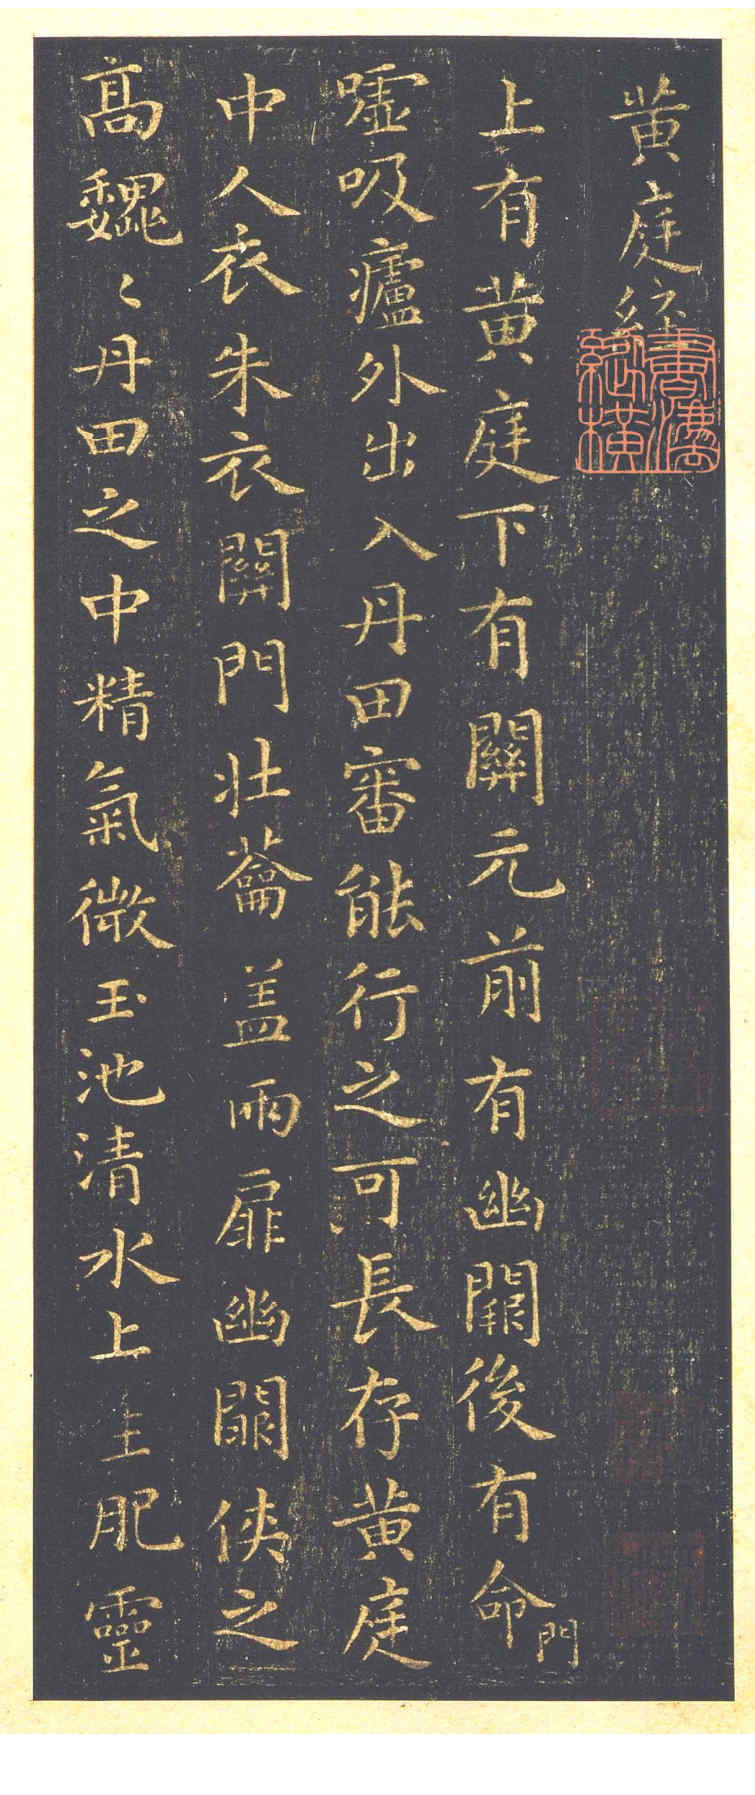 黃庭經
上有黃庭下有關元前有幽闕後有命門
噓吸廬外出入丹田審能行之可長存黃庭
中人衣朱衣關門壯蘥盖兩扉幽闕俠之
高魏〻丹田之中精氣微玉池清水上生肥靈